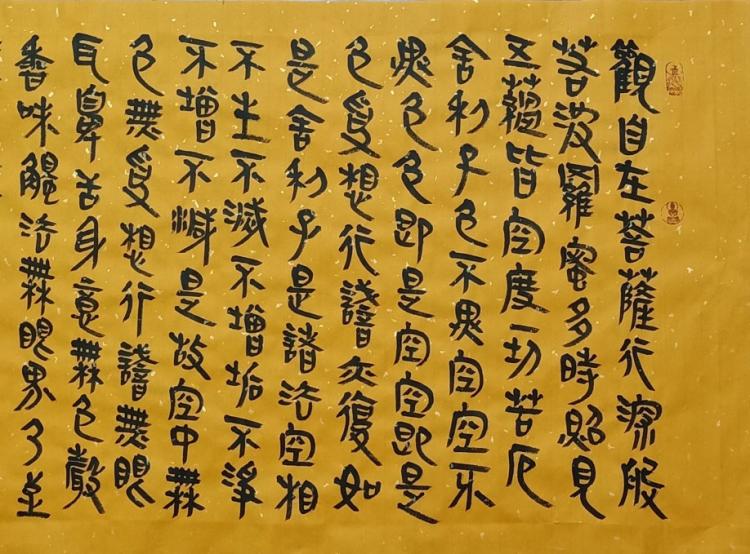 觀自在菩薩行深般
若波羅蜜多時照見
五蘊皆空度一切苦厄
舍利子色不異空空不
異色色即是空空即是
色受想行識亦復如
是舍利子是諸法空相
不生不滅不增垢不淨
不增不減是故空中無
色無受想行識無眼
耳鼻舌身意無色聲
香味觸法無眼界乃至